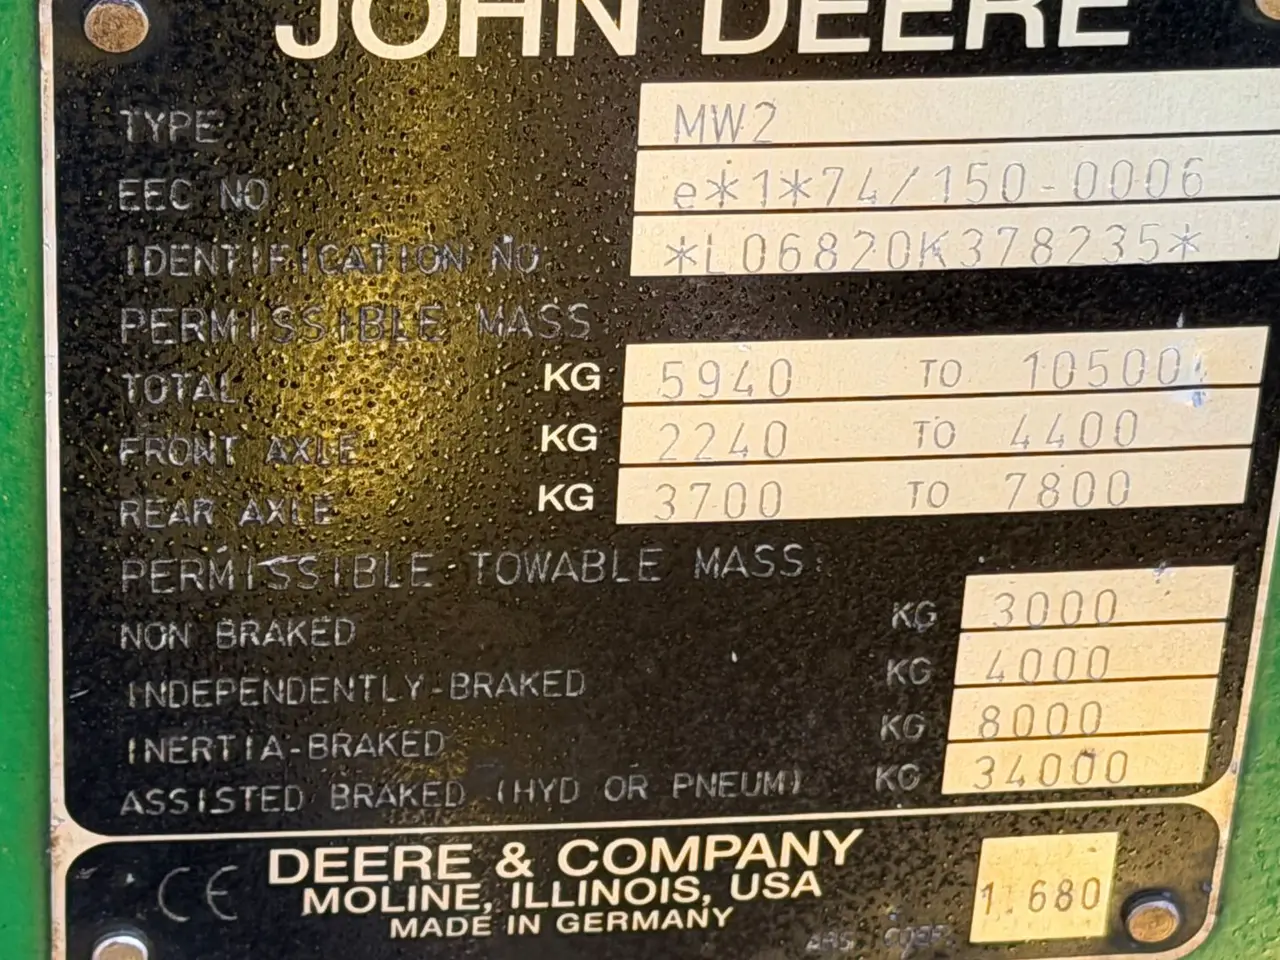 JOHN DEERE
TYPE MW2
EEC NO e*1*74/150-0006
IDENTIFICATION NO *L06820K378235*
PERMISSIBLE MASS
TOTAL KG 5940 TO 10500
FRONT AXLE KG 2240 TO 4400
REAR AXLE KG 3700 TO 7800
PERMISSIBLE TOWABLE MASS:
NON BRAKED KG 3000
INDEPENDENTLY-BRAKED KG 4000
INERTIA-BRAKED KG 8000
ASSISTED BRAKED (HYD OR PNEUM) KG 34000
CE
DEERE & COMPANY
MOLINE, ILLINOIS, USA
MADE IN GERMANY
1.680